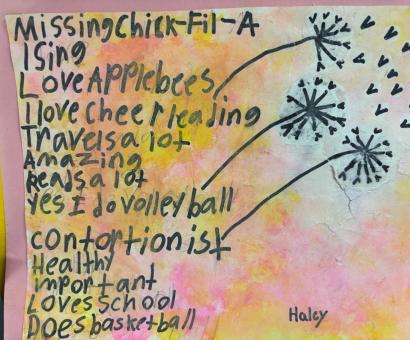 Missing Chick-Fil-A
I Sing
Love Applebees
I love Cheerleading
Travels a lot
Amazing
Reads a lot
Yes I do volley ball
contortionist
Healthy
important
Loves school
Does basketball
Haley